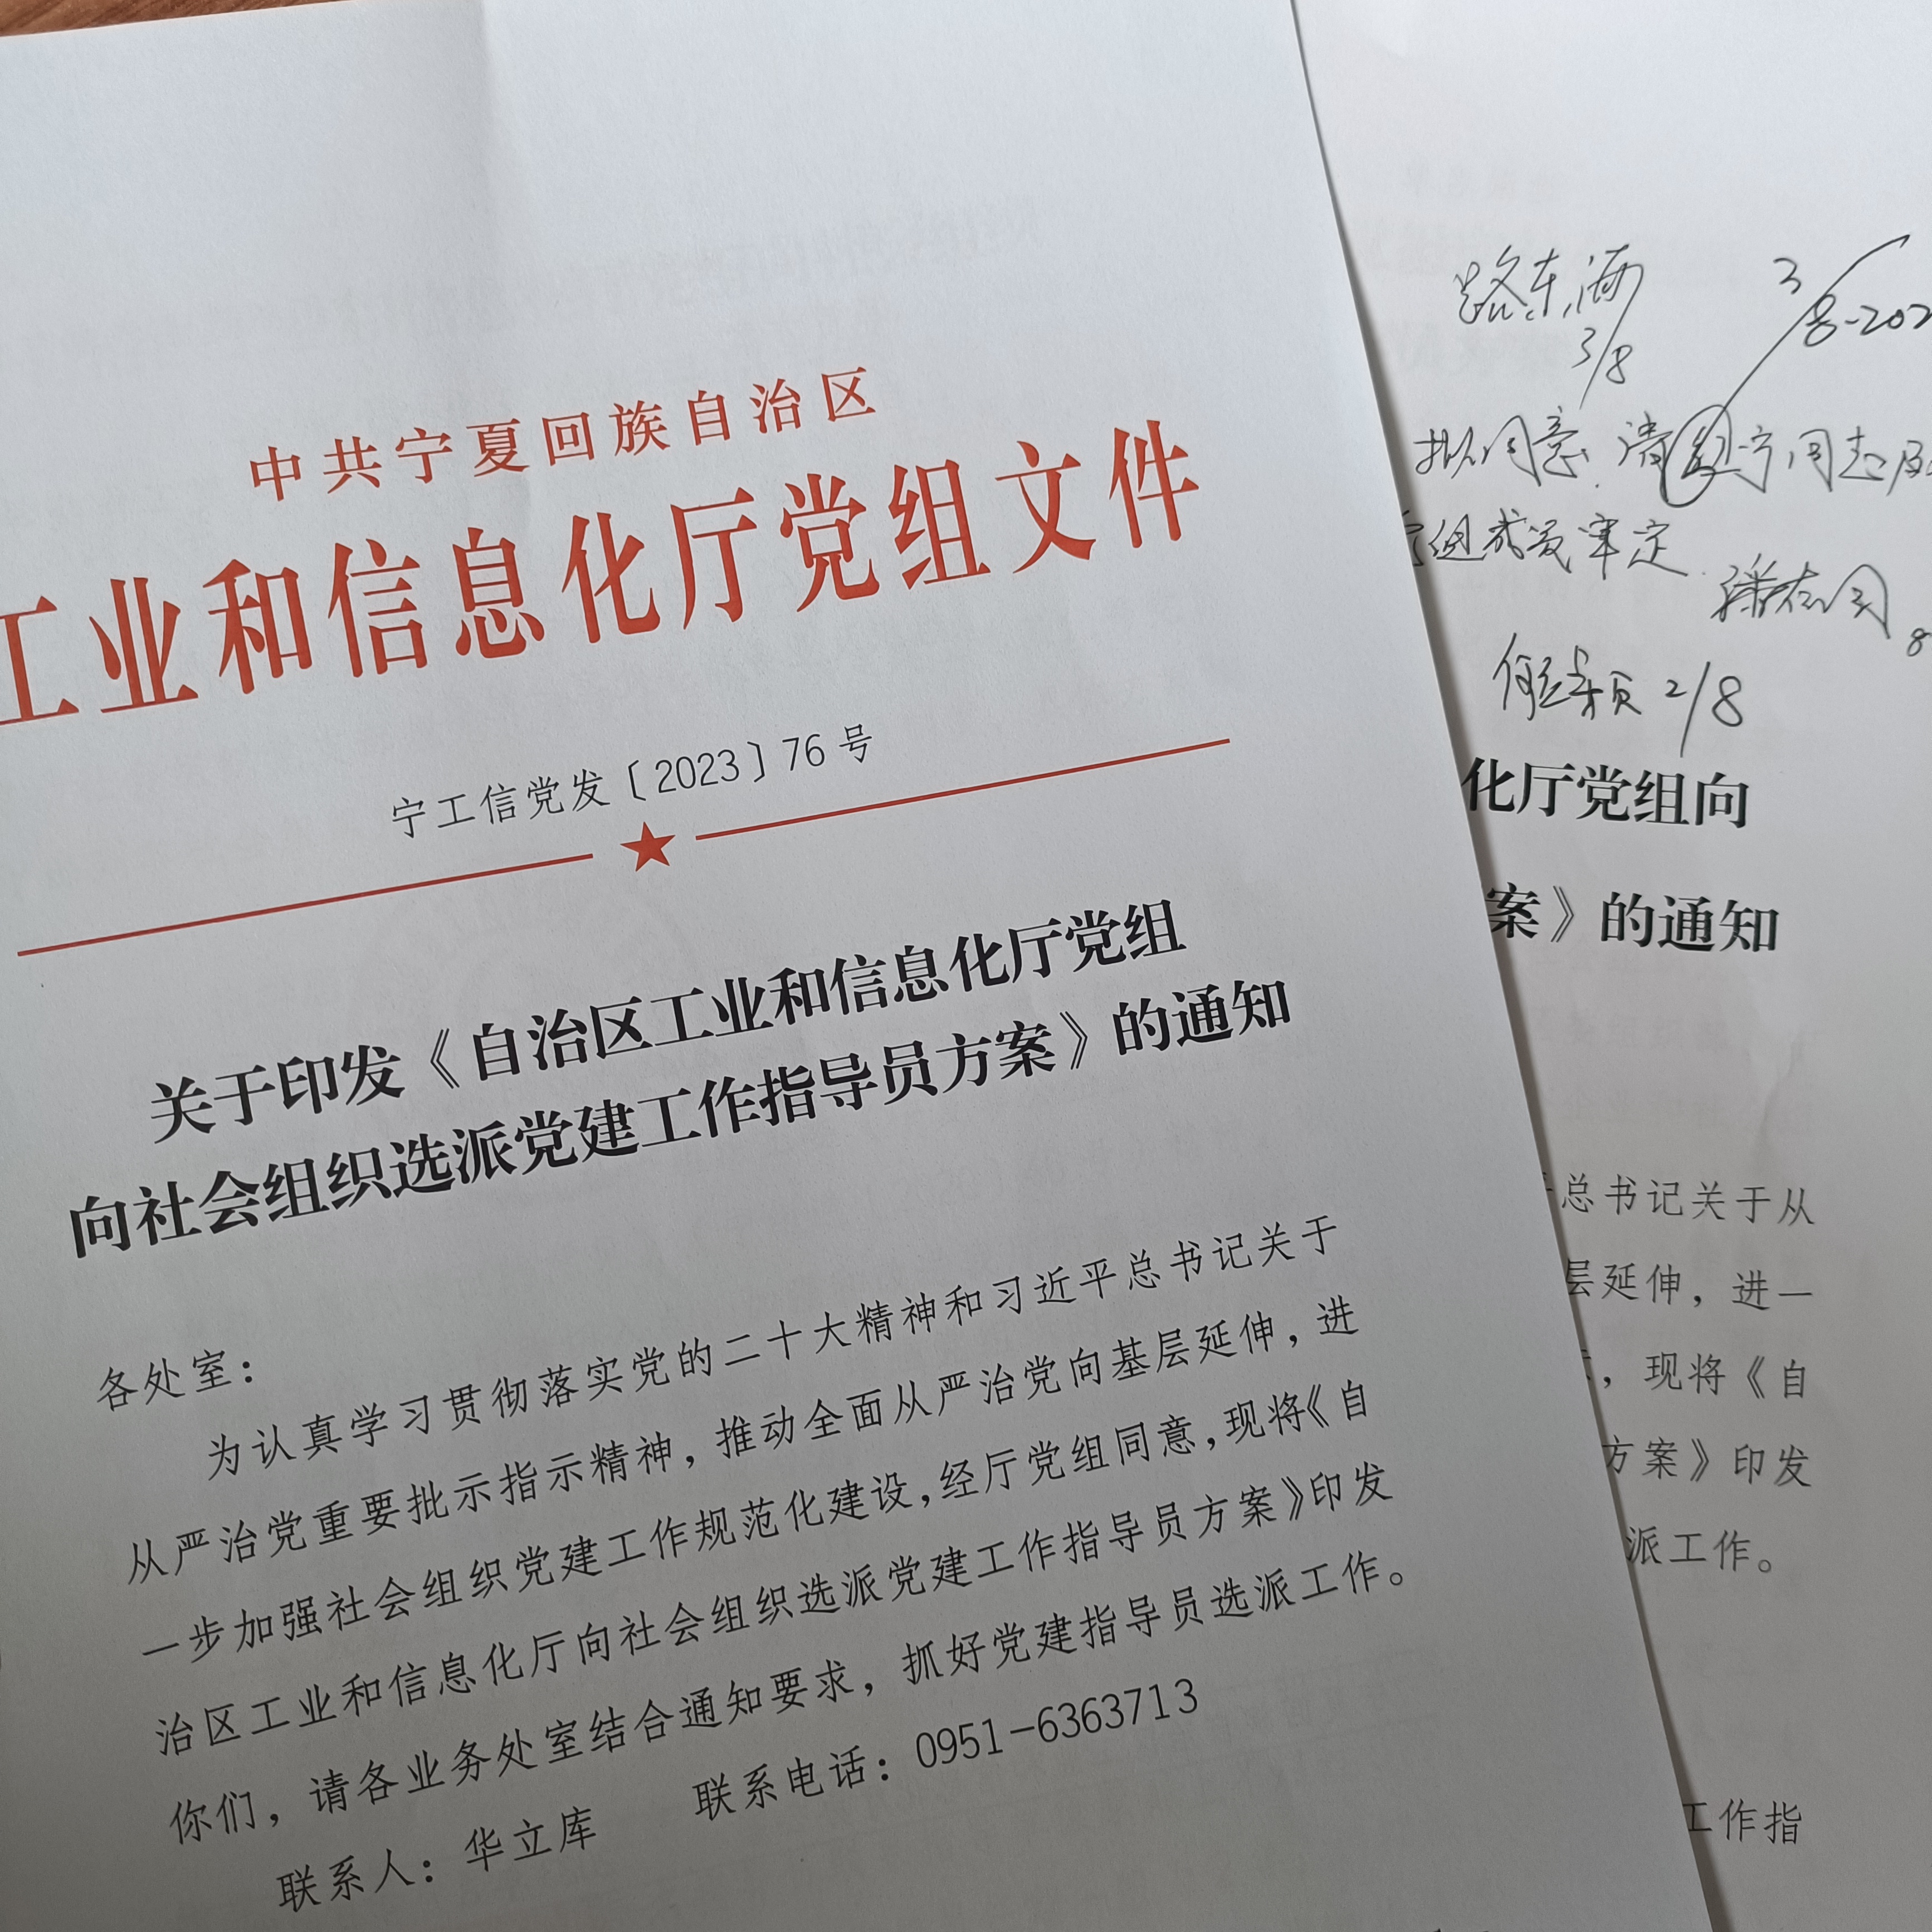 中共宁夏回族自治区
工业和信息化厅党组文件
宁工信党发〔2023〕76号
关于印发《自治区工业和信息化厅党组
向社会组织选派党建工作指导员方案》的通知
各处室：
为认真学习贯彻落实党的二十大精神和习近平总书记关于
从严治党重要批示指示精神，推动全面从严治党向基层延伸，进
一步加强社会组织党建工作规范化建设，经厅党组同意，现将《自
治区工业和信息化厅向社会组织选派党建工作指导员方案》印发
你们，请各业务处室结合通知要求，抓好党建指导员选派工作。
联系人：华立库 联系电话：0951-6363713
路东海
3/8
3/8-202
拟同意.请 宁同志及
组成员审定.
2/8
化厅党组向
案》的通知
总书记关于从
层延伸，进一
，现将《自
方案》印发
派工作。
工作指